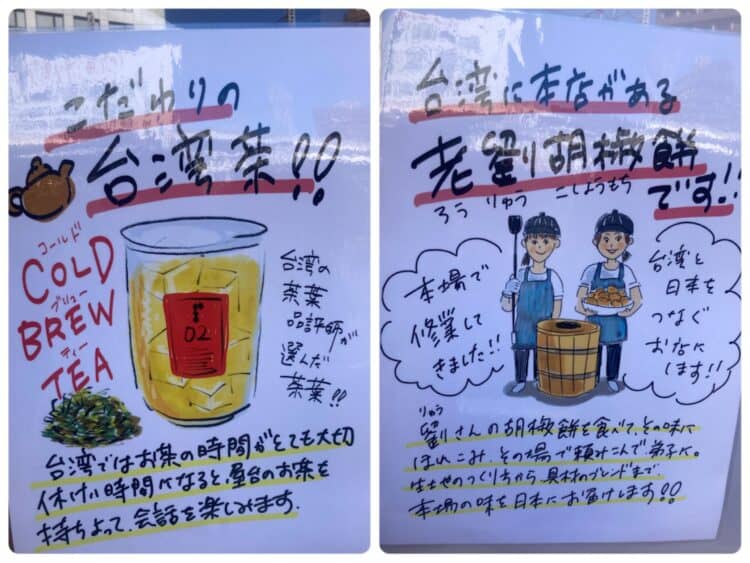 こだわりの
台湾茶!!
コールド
COLD
ブリュー
BREW
ティー
TEA
02
台湾の
茶葉
品評師が
選んだ
茶葉!!
台湾ではお茶の時間がとても大切
休けい時間になると、屋台のお茶を
持ちよって、会話を楽しみます.
台湾に本店がある
老劉胡椒餅
ろうりゅうこしょうもち
です!!
本場で
修業して
きました!!
台湾と
日本を
つなぐ
お店に
します!!
りゅう
劉さんの胡椒餅を食べて、その味に
ほれこみ、その場で頼みこんで、弟子に。
生地のつくり方から、具材のブレンドまで
本場の味を日本にお届けします!!